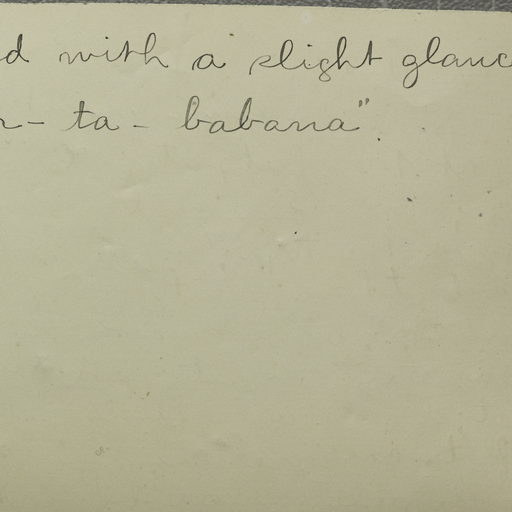 d with a slight glanc
- ta - babana".